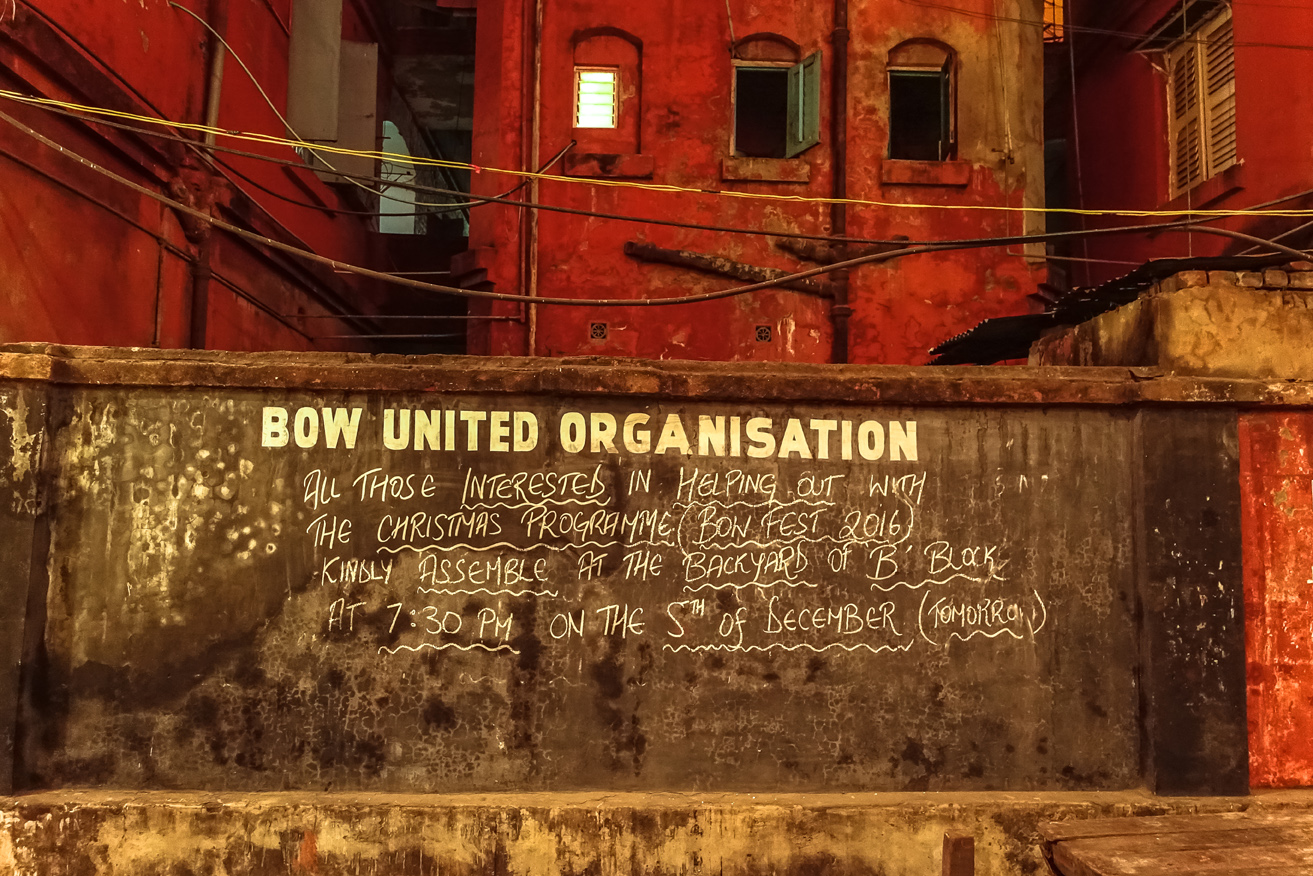 BOW UNITED ORGANISATION
ALL THOSE INTERESTED IN HELPING OUT WITH
THE CHRISTMAS PROGRAMME (BOW FEST 2016)
KINDLY ASSEMBLE AT THE BACKYARD OF B' BLOCK
AT 7:30 PM ON THE 5TH OF DECEMBER (TOMORROW)